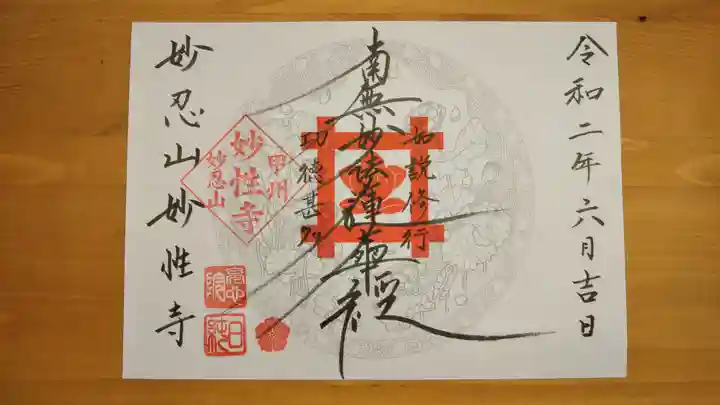 令和二年六月吉日
如説修行
南無妙法蓮華経
功徳甚多
妙忍山妙性寺
甲州
妙性寺
妙忍山